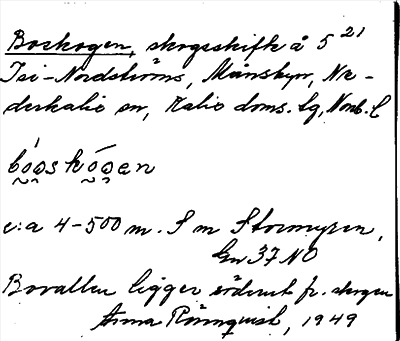 Boskogen, skogsskifte å 5 21
Isi-Nordströms, Månsbyn, Ne-
derkalix sn, Kalix doms. lg, Norrb. l
bóoskóɡen
c:a 4-500 m. S m Stormyren,
Gn 37 NO
Bovallen ligger söderut fr. skogen
Anna Rönnquist, 1949